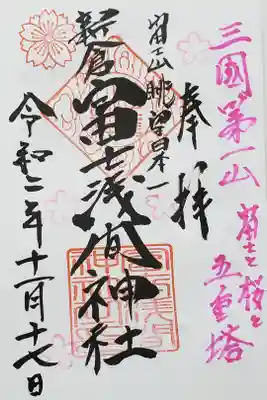 三國第一山
富士と桜と
五重塔
奉拝
富士山眺望日本一
新倉富士浅間神社
令和二年十一月十七日